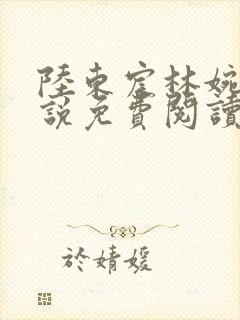 陸東宦林婉
說免費閱讀
於婧媛